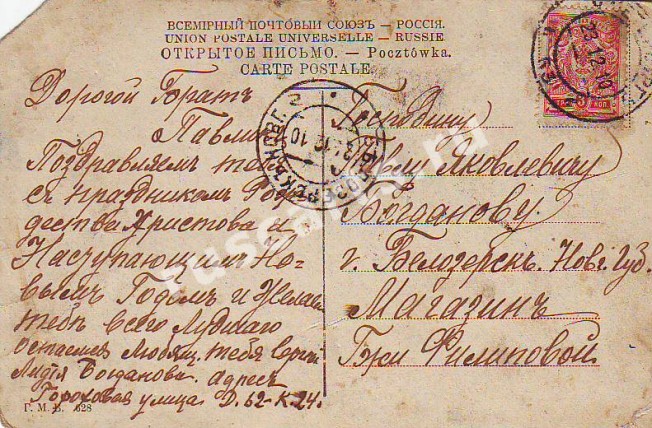 ВСЕМІРНЫЙ ПОЧТОВЫЙ СОЮЗЪ — РОССІЯ.
UNION POSTALE UNIVERSELLE — RUSSIE
ОТКРЫТОЕ ПИСЬМО. — Pocztówka.
CARTE POSTALE
Дорогой Братъ
Павлик
Поздравляем тебя
съ праздником Рож
дества Христова и
Наступающимъ Но-
вымъ Годомъ и Желаем
тебѣ всего Лудшаго
остаемся любящ. тебя Сергей
Лидія Богданова. адресъ
Гороховая улица Д. 62-К. 24.
Г. М. Б. 628
Господину
Павлу Яковлевичу
Богданову.
г. Белозерск. Новг. Губ.
Магазинъ
Гжи Филиповой
23.12.10